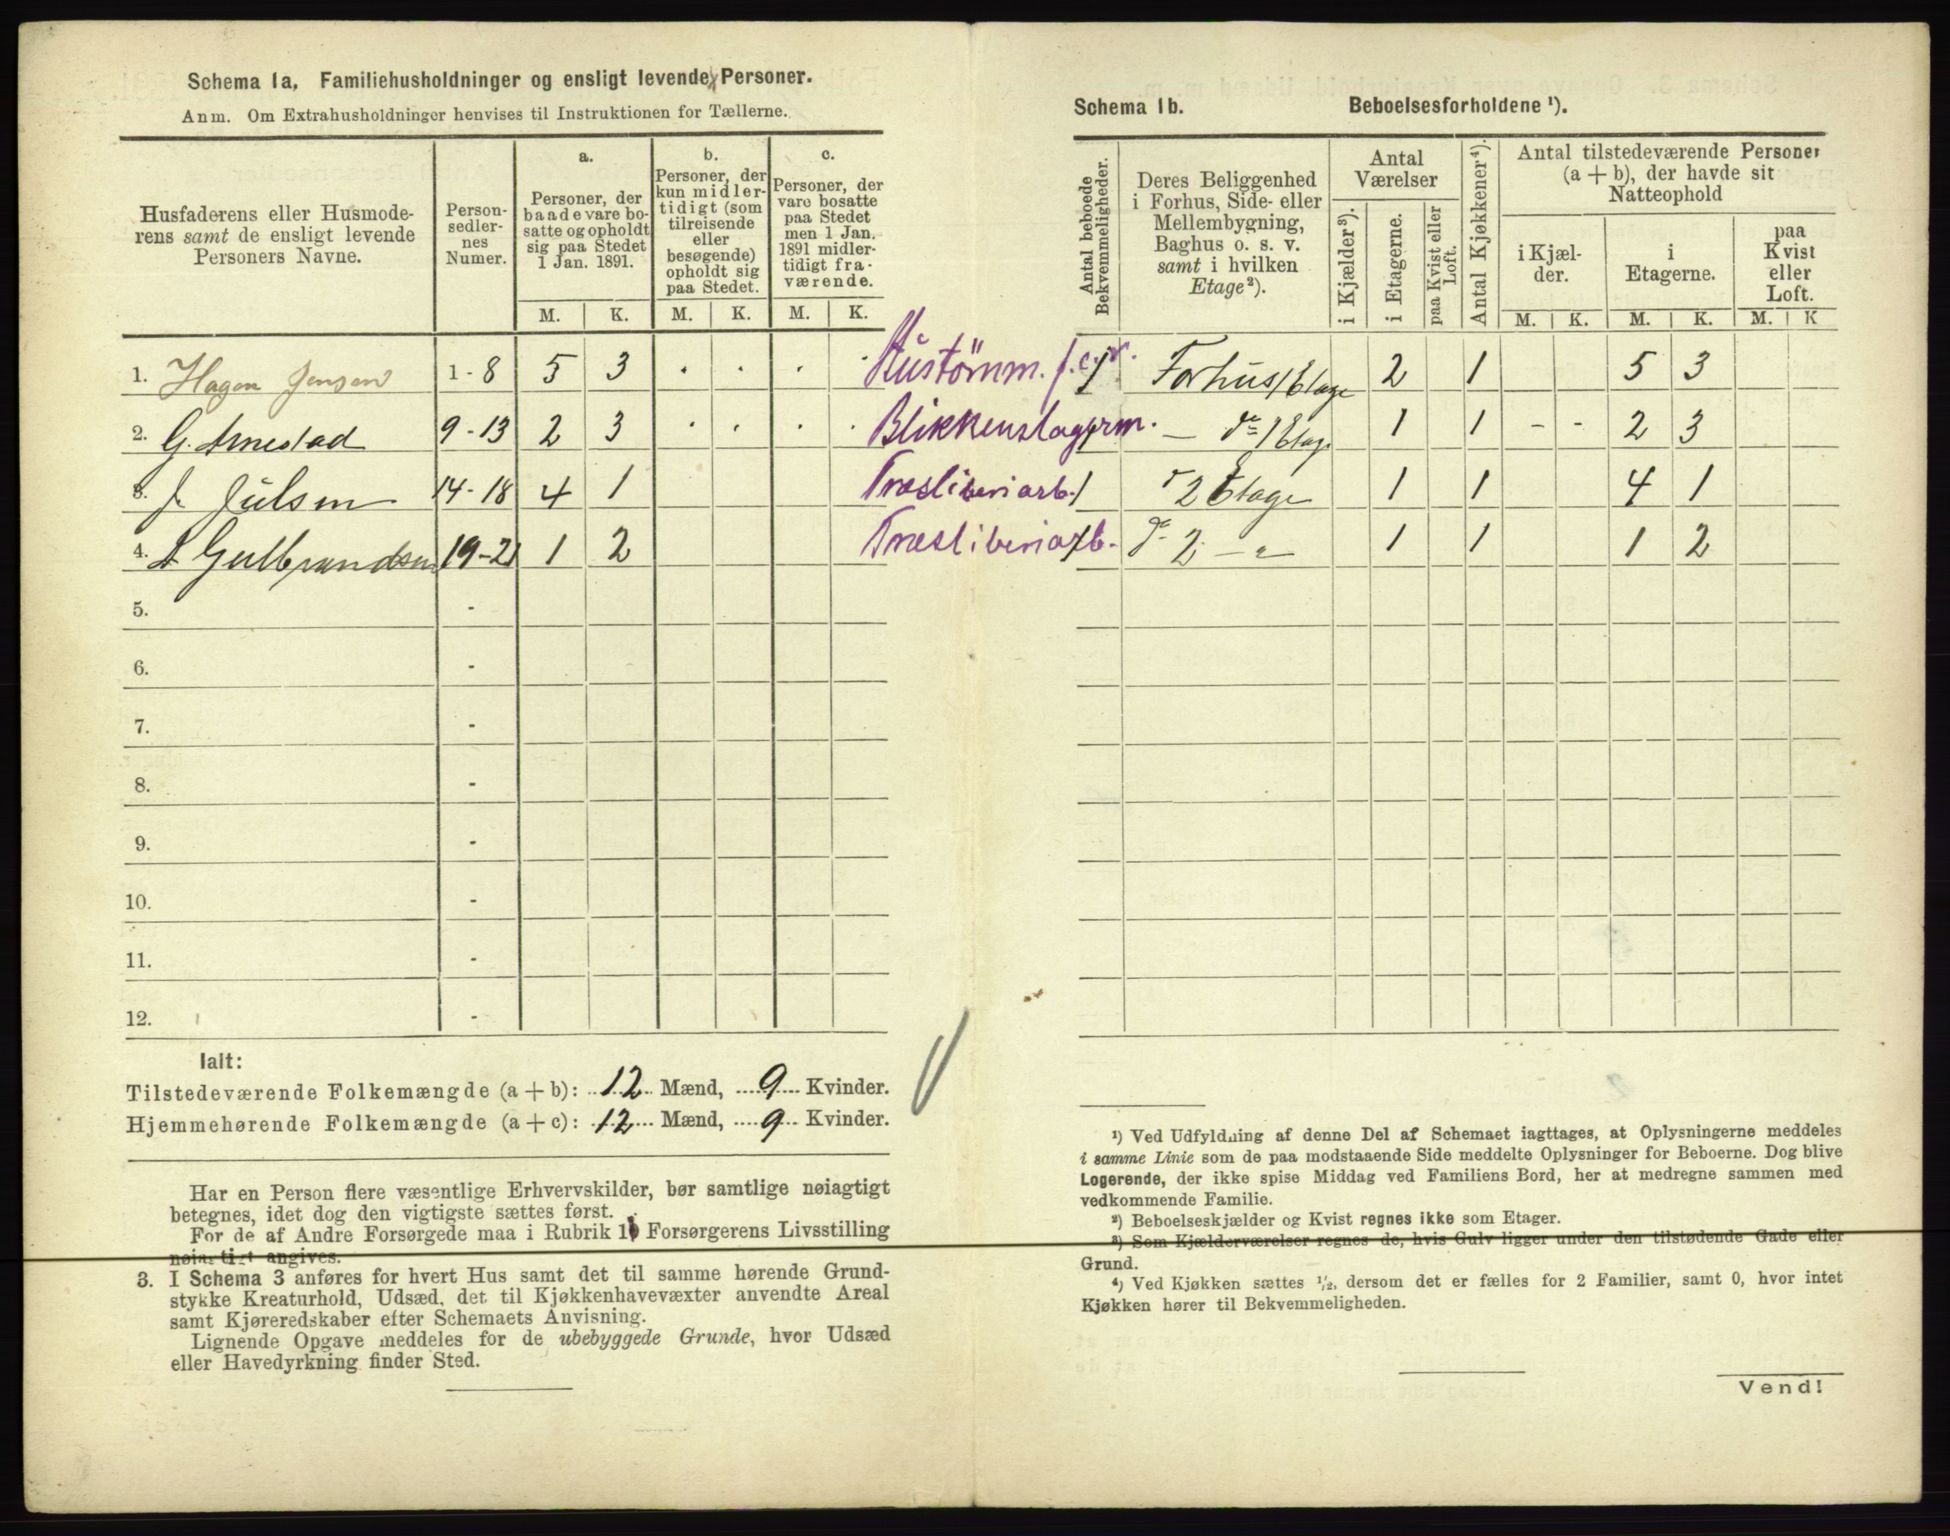 Schema 1a, Familiehusholdninger og ensligt levende Personer.
Anm. Om Extrahusholdninger henvises til Instruktionen for Tællerne.
Husfaderens eller Husmode-
rens samt de ensligt levende
Personers Navne.
Person-
sedler-
nes
Numer.
a.
Personer, der
baade vare bo-
satte og opholdt
sig paa Stedet
1 Jan. 1891.
b.
Personer, der
kun midler-
tidigt (som
tilreisende
eller
besøgende)
opholdt sig
paa Stedet.
c.
Personer, der
vare bosatte
paa Stedet
men 1 Jan.
1891 midler-
tidigt fra-
værende.
M. K. M. K. M. K.
1. Hagen Jensen 1-8 5 3 . . . .
2. G. Arnestad 9-13 2 3 . . . .
3. J Julsen 14-18 4 1
4. A Gulbrandsen 19-21 1 2
5. -
6. -
7. -
8. -
9. -
10. -
11. -
12. -
Ialt:
Tilstedeværende Folkemængde (a+b): 12 Mænd, 9 Kvinder.
Hjemmehørende Folkemængde (a+c): 12 Mænd, 9 Kvinder.
Har en Person flere væsentlige Erhvervskilder, bør samtlige nøiagtigt
betegnes, idet dog den vigtigste sættes først.
For de af Andre Forsørgede maa i Rubrik 10 Forsørgerens Livsstilling
nøiagtigt angives.
3. I Schema 3 anføres for hvert Hus samt det til samme hørende Grund-
stykke Kreaturhold, Udsæd, det til Kjøkkenhavevæxter anvendte Areal
samt Kjøreredskaber efter Schemaets Anvisning.
Lignende Opgave meddeles for de ubebyggede Grunde, hvor Udsæd
eller Havedyrkning finder Sted.
Schema 1b. Beboelsesforholdene ¹).
Antal beboede
Bekvemmeligheder.
Deres Beliggenhed
i Forhus, Side- eller
Mellembygning,
Baghus o. s. v.
samt i hvilken
Etage²).
Antal
Værelser
i Kjælder³).
i Etagerne.
paa Kvist eller
Loft.
Antal Kjøkkener⁴).
Antal tilstedeværende Personer
(a + b), der havde sit
Natteophold
i Kjæl-
der.
i
Etagerne.
paa
Kvist
eller
Loft.
M. K. M. K. M. K
Hustømm. f.e.r. 1 Forhus 1 Etage 2 1 5 3
Blikkenslagerm. 1 — do 1 Etage 1 1 - - 2 3
Træsliberiarb. 1 2 Etage 1 1 4 1
Træsliberiarb. 1 do 2 — " 1 1 1 2
¹) Ved Udfyldning af denne Del af Schemaet iagttages, at Oplysningerne meddeles
i samme Linie som de paa modstaaende Side meddelte Oplysninger for Beboerne. Dog blive
Logerende, der ikke spise Middag ved Familiens Bord, her at medregne sammen med
vedkommende Familie.
²) Beboelseskjælder og Kvist regnes ikke som Etager.
³) Som Kjælderværelser regnes de, hvis Gulv ligger under den tilstødende Gade eller
Grund.
⁴) Ved Kjøkken sættes ¹/₂, dersom det er fælles for 2 Familier, samt 0, hvor intet
Kjøkken hører til Bekvemmeligheden.
Vend!